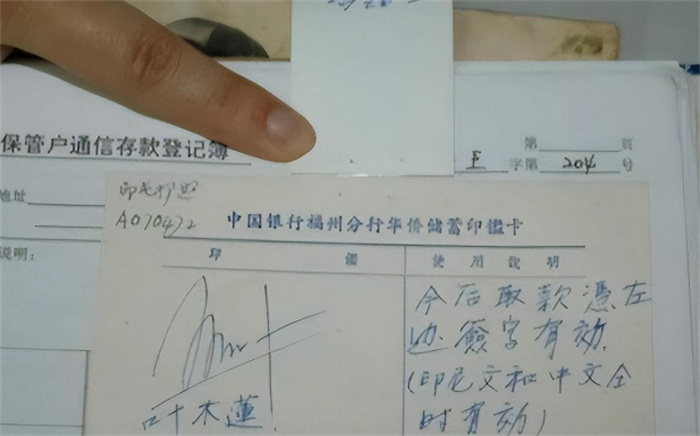 第 页
保管户通信存款登记簿
字第 204 号
地址
说明：
印尼护照
A070472
中国银行福州分行华侨储蓄印鑑卡
印 鑑
使用说明
今后取款憑左
边簽字有效
(印尼文和中文全
时有效)
叶木蓮